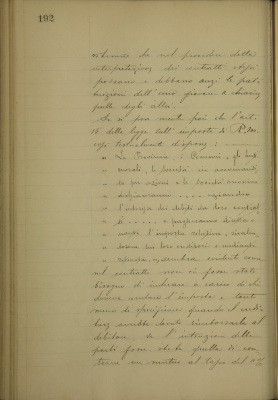 192
ritenne che nel procedere della
interpretazione dei contratti stessi
possano e debbano anzi le pat-
tuizioni dell'uno giovare a chiarire
quelle degli altri.
Se si pon mente poi che l'art.
15 della legge sull'imposta di R.M.
così testualmente dispone:
" Le Provincie, i Comuni, gli enti
morali, le Società in accomandita
per azioni e le società anonime
dichiareranno
l'interesse dei debiti da loro
e pagheranno diretta-
mente l'imposta relativa, rivalen-
dosene sui loro creditori mediante
ritenuta, sembra evidente come
nel contratto non vi fosse stato
bisogno di indicare a carico di chi
doveva andare l'imposta e tanto
meno di specificare quando il credi-
tore avrebbe dovuto rimborsarla al
debitore, se l'intenzione delle
parti fosse stata quella di con-
trarre un mutuo al tasso del